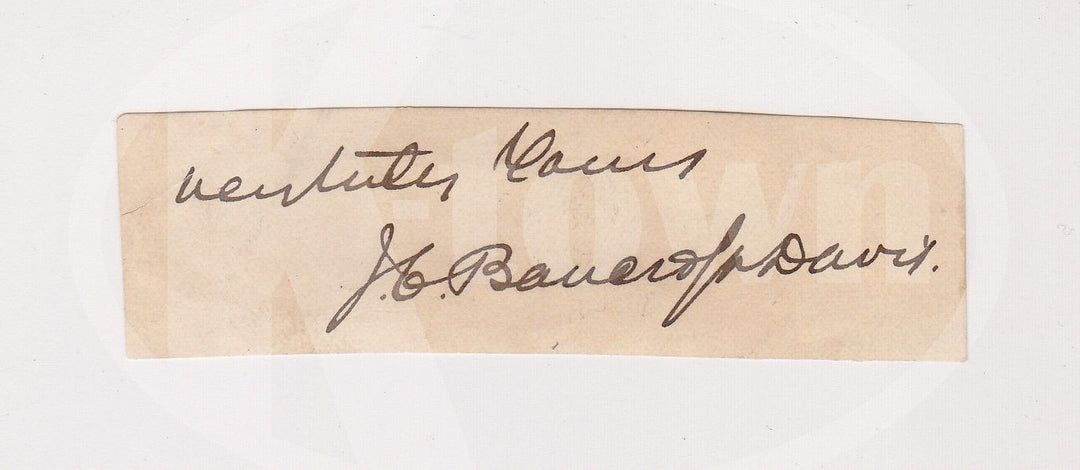 very truly Yours
J. C. Bancroft Davis.
K-town